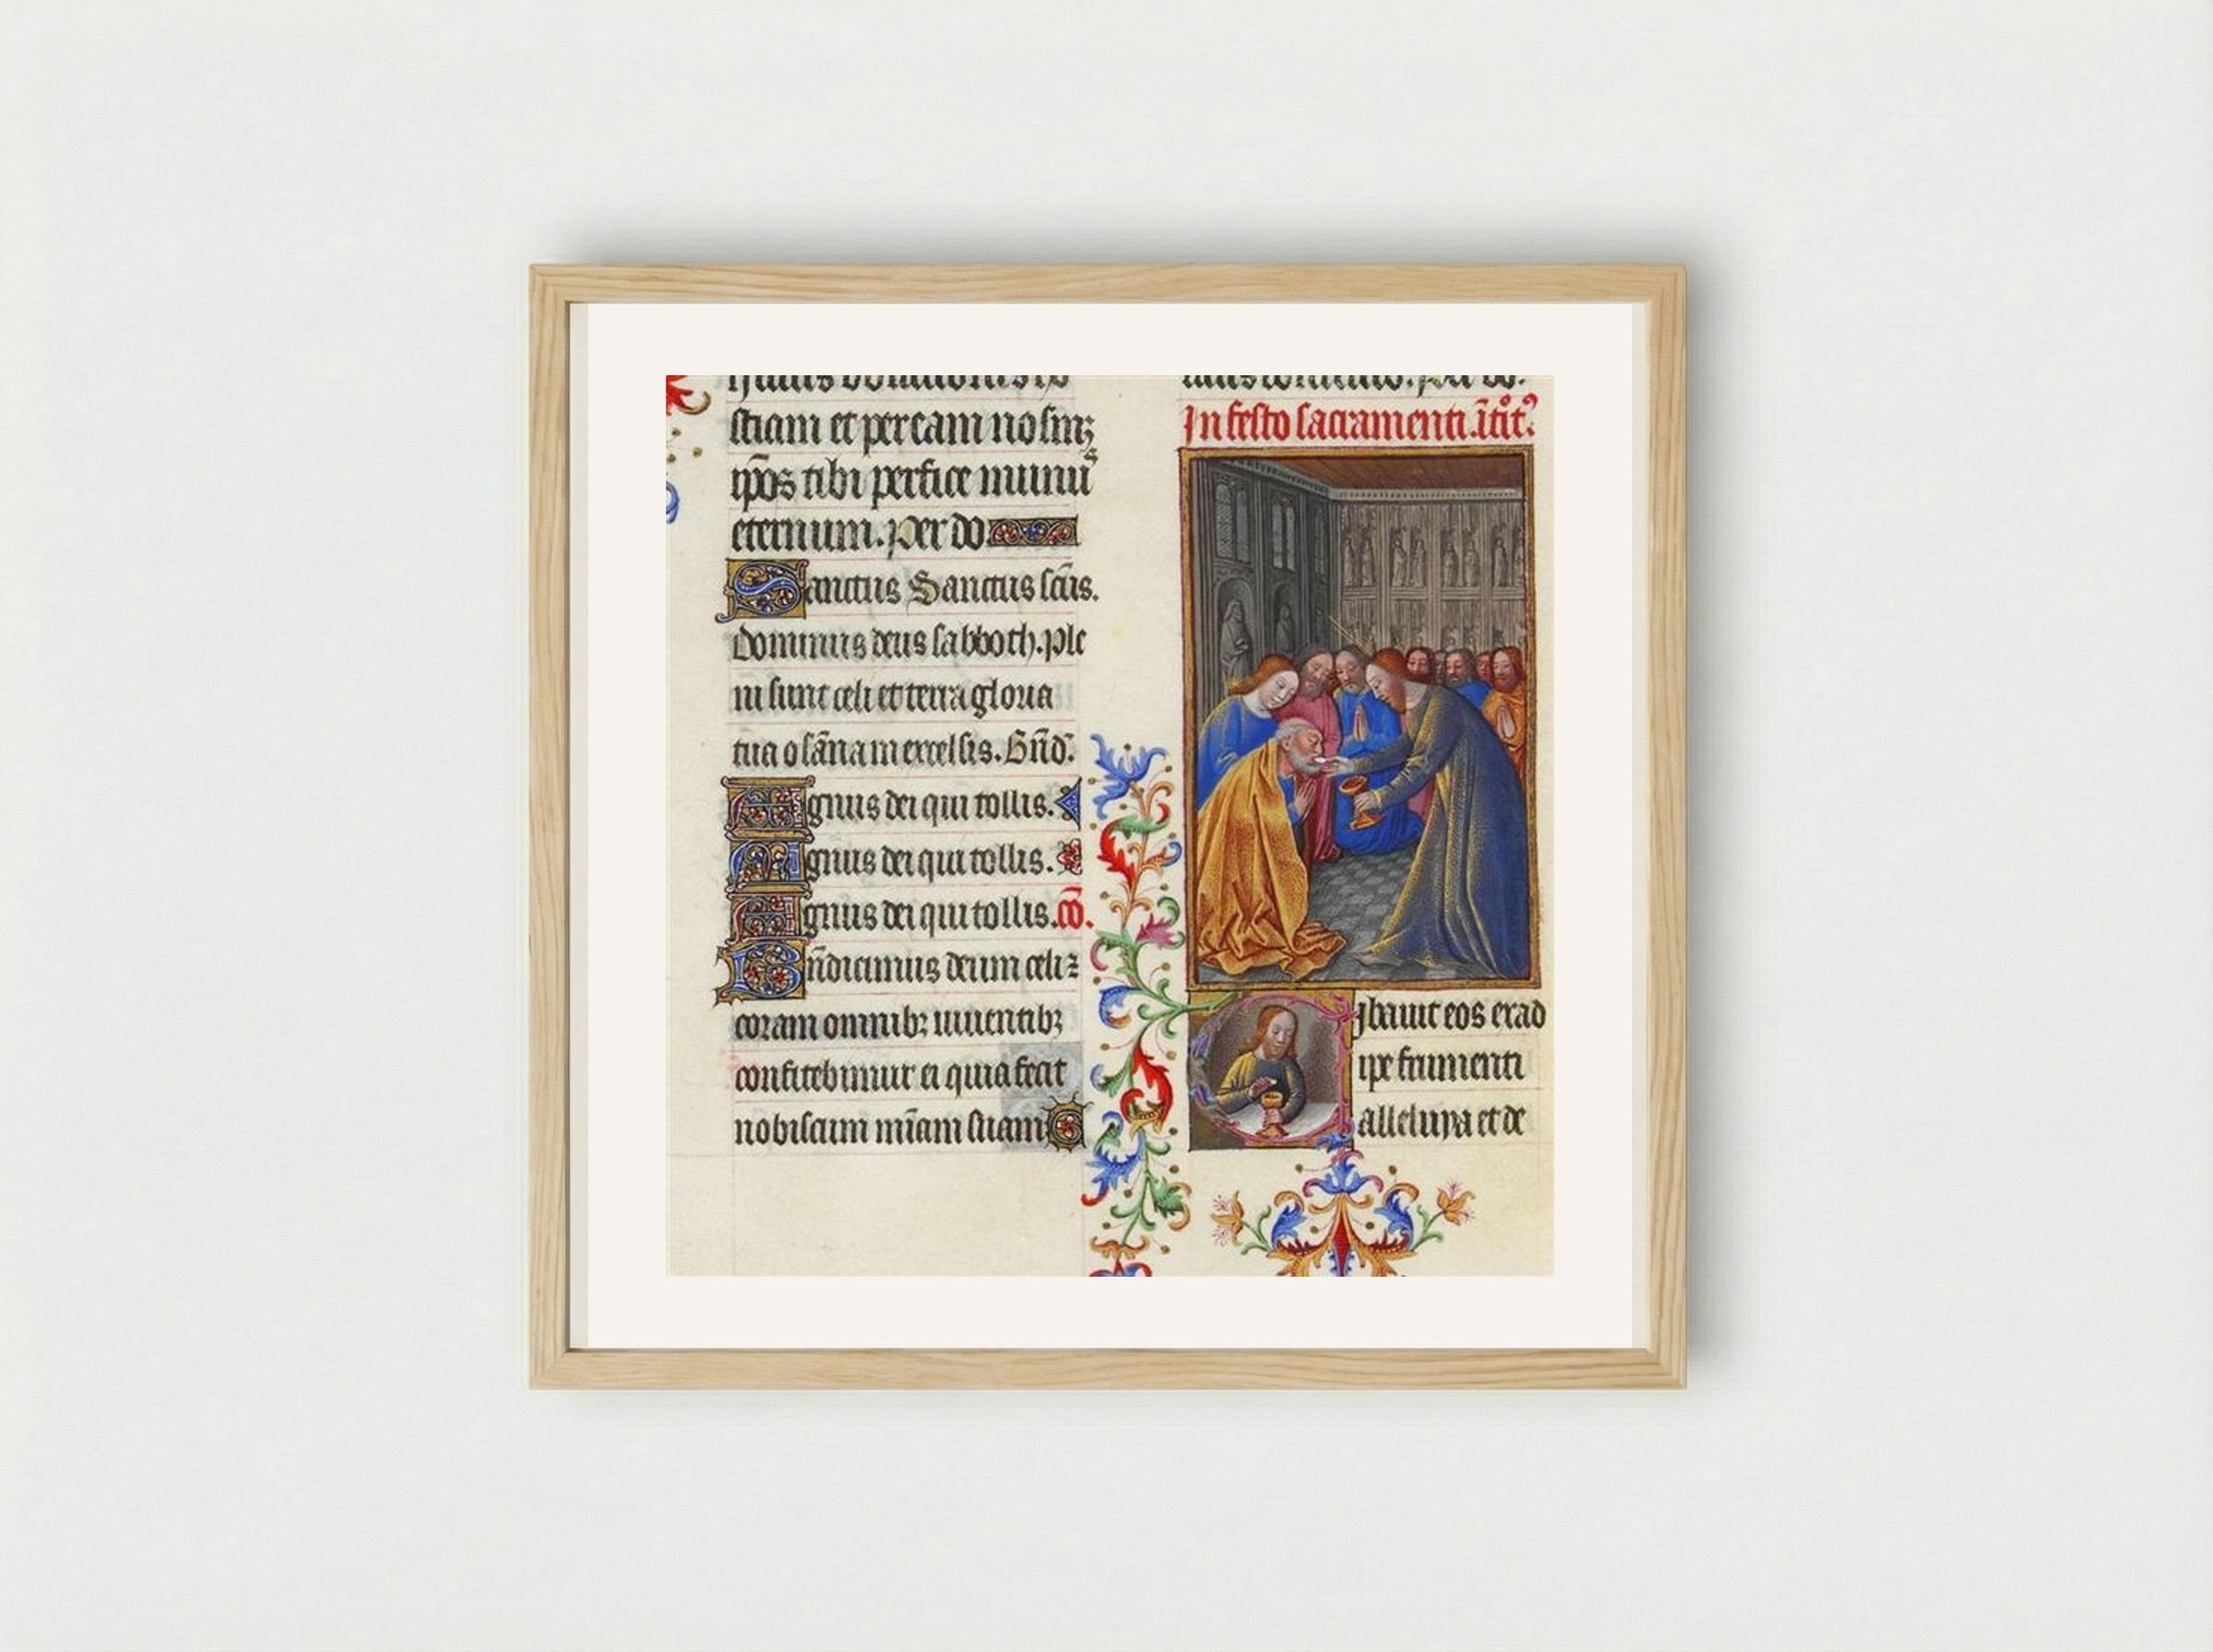 stiam et per eam nosmꝫ
ip̄os tibi perfice munuˢ
eternum. Per do
Sanctus Sanctus sc̄us.
Dominus deus sabboth. Ple
ni sunt celi et terra gloria
tua osāna in excelsis. Bn̄d.
Agnus dei qui tollis.
Agnus dei qui tollis.
Agnus dei qui tollis. cō.
Bn̄dicimus deum celi ⁊
coram omnibꝫ uiuentibꝫ
confitebimur ei quia fecit
nobiscum mīam suam
In festo sacramenti. ītit.
Cibauit eos ex ad
ipe frumenti
alleluya et de